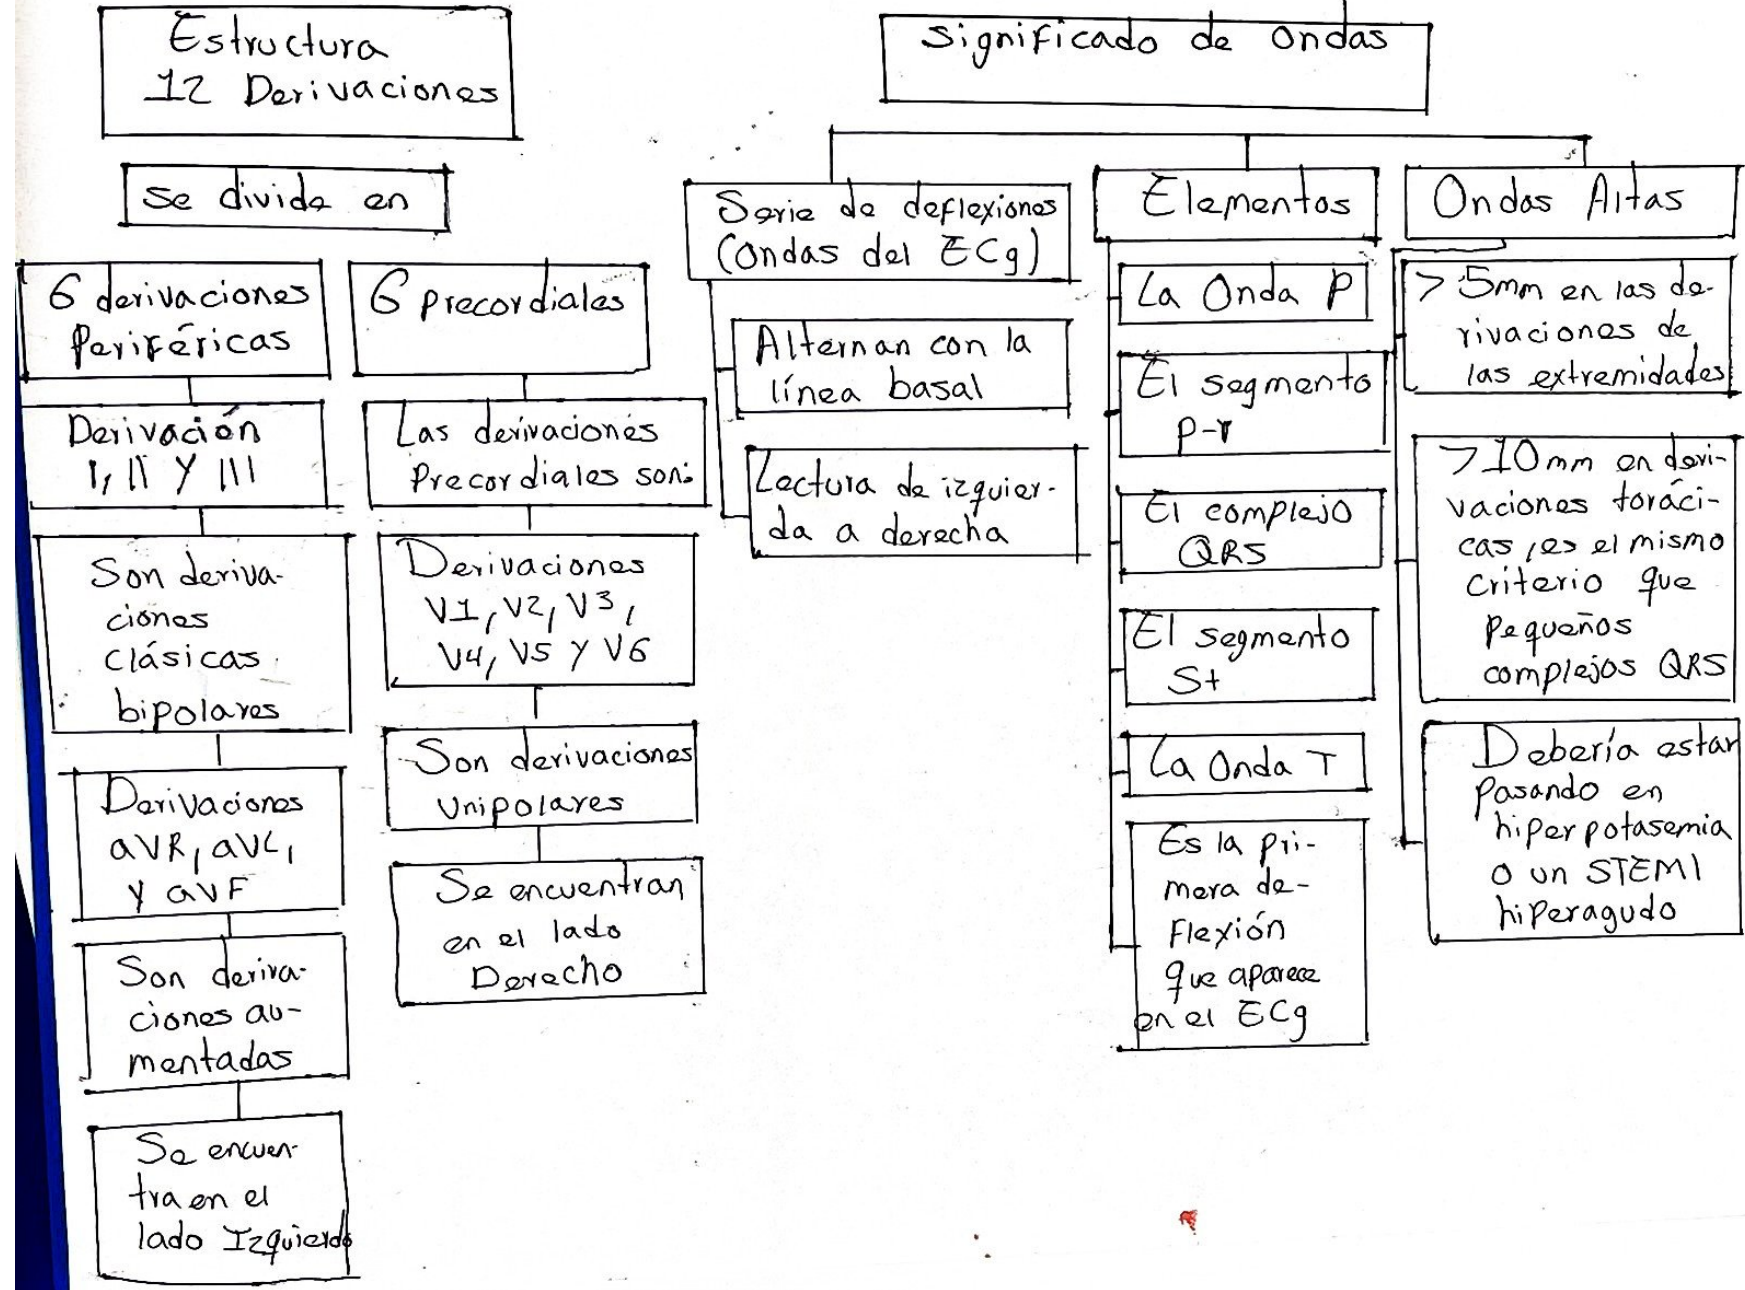 Estructura
12 Derivaciones
se divide en
6 derivaciones
Periféricas
Derivación
I, II Y III
Son deriva-
ciones
clásicas
bipolares
Derivaciones
aVR, aVL,
y aVF
Son deriva-
ciones au-
mentadas
Se encuen-
tra en el
lado Izquierdo
6 precordiales
Las derivaciones
Precordiales son:
Derivaciones
V1, V2, V3,
V4, V5 y V6
Son derivaciones
Unipolares
Se encuentran
en el lado
Derecho
significado de ondas
Serie de deflexiones
(ondas del ECg)
Alternan con la
línea basal
Lectura de izquier-
da a derecha
Elementos
La Onda P
El segmento
P-r
El complejo
QRS
El segmento
St
La Onda T
Es la pri-
mera de-
flexión
que aparece
en el ECg
Ondas Altas
> 5mm en las de-
rivaciones de
las extremidades
>10mm en deri-
vaciones toráci-
cas, es el mismo
criterio que
Pequeños
complejos QRS
Debería estar
pasando en
hiperpotasemia
o un STEMI
hiperagudo